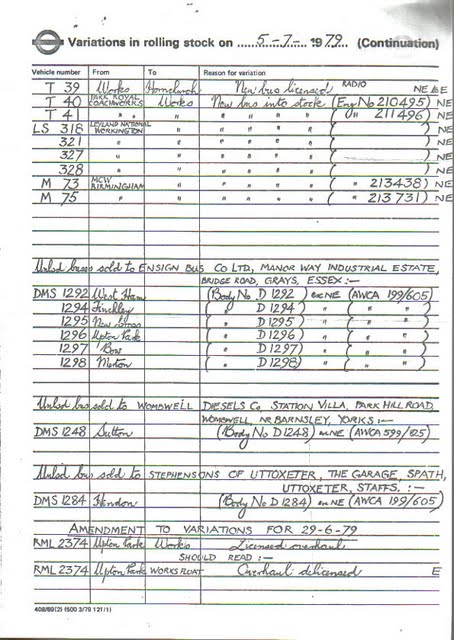 Variations in rolling stock on 5-7-1979 (Continuation)
Vehicle number From To Reason for variation
T 39 Works Hornchurch New bus licensed RADIO NE & E
T 40 PARK ROYAL COACHWORKS Works New bus into stock (Eng No 210495) NE
T 41 " " " " " " " ( " 211496) NE
LS 318 LEYLAND NATIONAL WORKINGTON " " " " " ( ) NE
321 " " " " " " ( ) NE
327 " " " " " " ( ) NE
328 " " " " " " ( ) NE
M 73 MCW BIRMINGHAM " " " " " ( " 213438) NE
M 75 " " " " " " ( " 213731) NE
Unlsd buses sold to ENSIGN BUS Co LTD, MANOR WAY INDUSTRIAL ESTATE,
BRIDGE ROAD, GRAYS, ESSEX :-
DMS 1292 West Ham (Body No D1292) ex NE (AWCA 199/605)
1294 Finchley ( " D1294) " ( " " )
1295 New Cross ( " D1295) " ( " " )
1296 Upton Park ( " D1296) " ( " " )
1297 Bow ( " D1297) " ( " " )
1298 Merton ( " D1298) " ( " " )
Unlsd bus sold to WOMBWELL DIESELS Co, STATION VILLA, PARK HILL ROAD,
WOMBWELL, NR BARNSLEY, YORKS :-
DMS 1248 Sutton (Body No D1248) ex NE (AWCA 599/625)
Unlsd bus sold to STEPHENSONS OF UTTOXETER, THE GARAGE, SPATH,
UTTOXETER, STAFFS. :-
DMS 1284 Hendon (Body No D1284) ex NE (AWCA 199/605)
AMENDMENT TO VARIATIONS FOR 29-6-79
RML 2374 Upton Park Works Licensed overhaul
SHOULD READ :-
RML 2374 Upton Park WORKS FLOAT Overhaul delicensed E
408/89(2) (500 3/79 121/1)